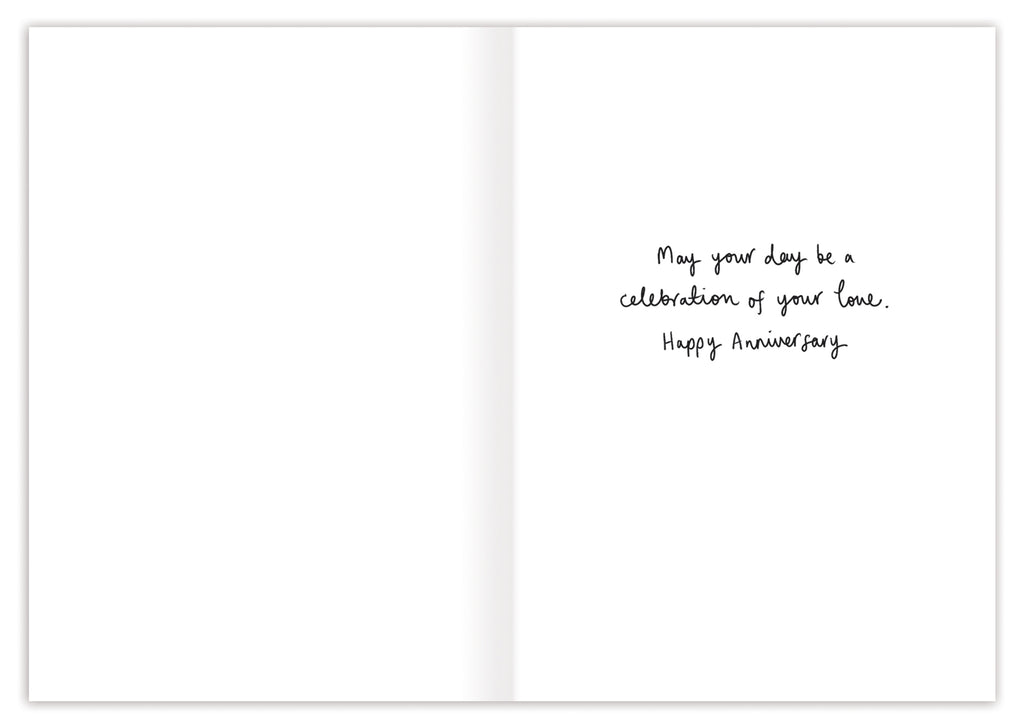 May your day be a
celebration of your love.
Happy Anniversary